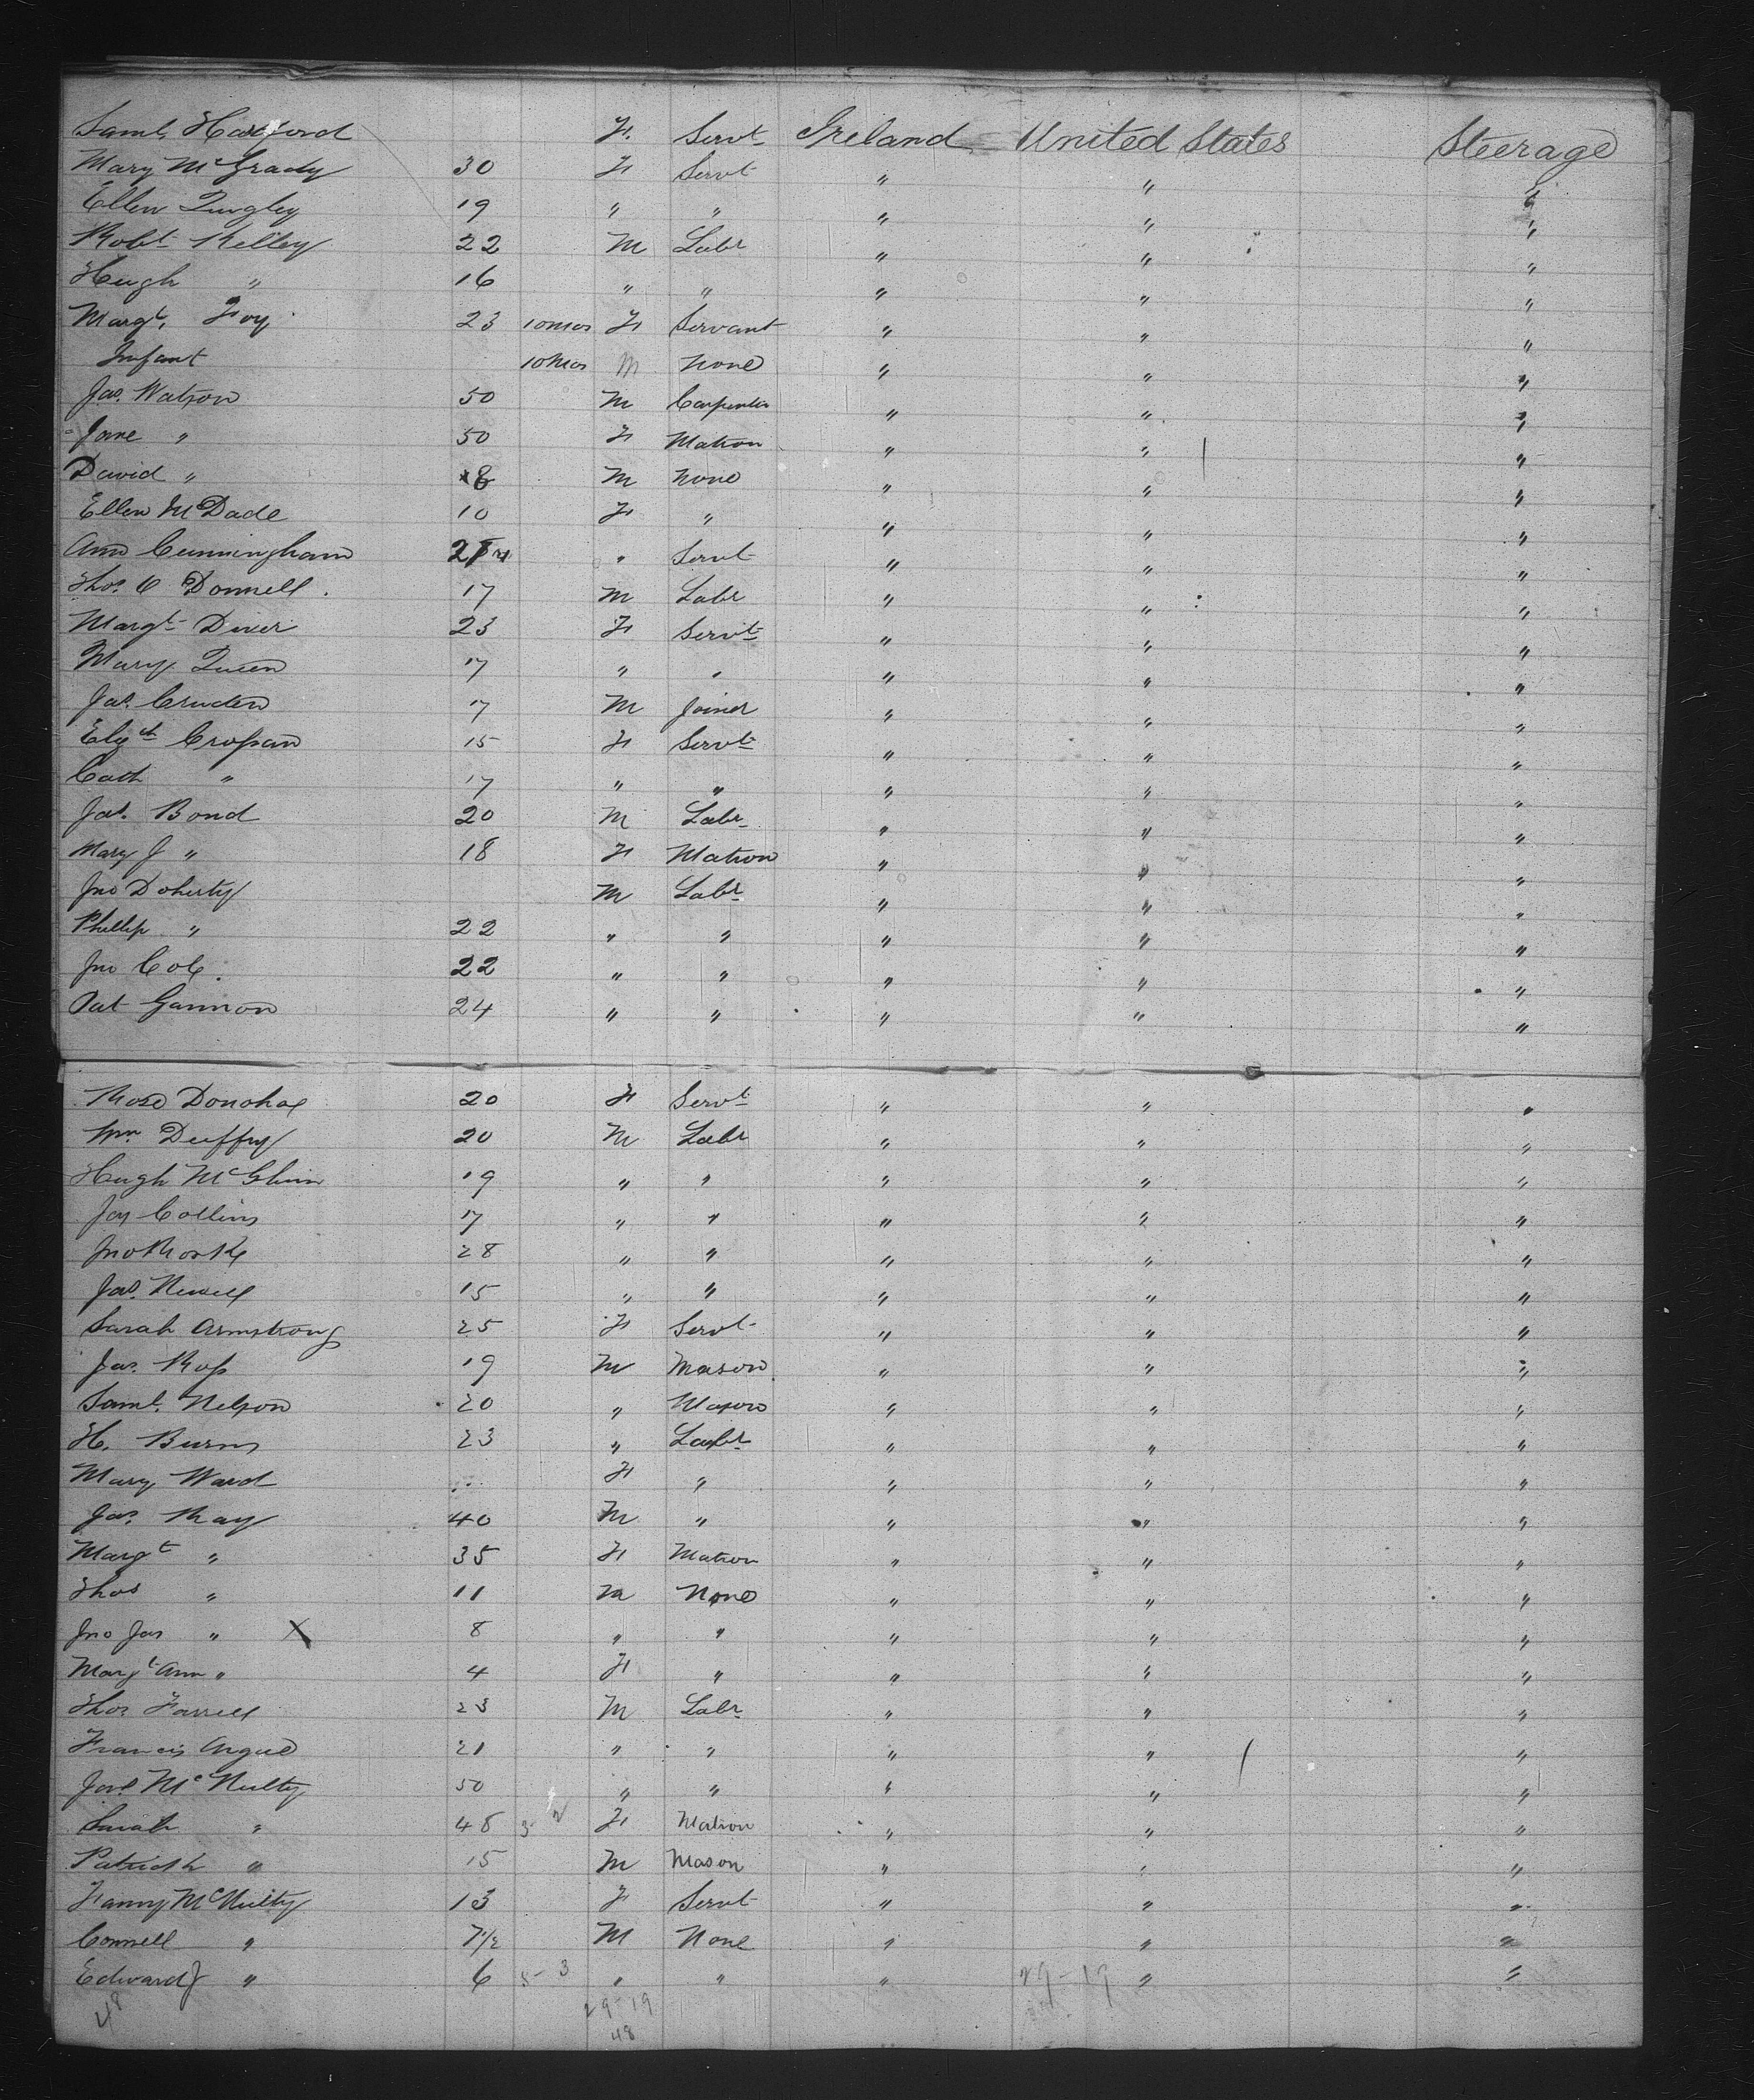 Saml. Hartford F. Servt Ireland United States Steerage
Mary McGrady 30 F Servt " " "
Ellen Quigley 19 " " " " "
Robt Kelley 22 M Labr " " "
Hugh " 16 " " " " "
Margt. Foy 23 10mos F Servant " " "
Infant 10mos M None " " "
Jas. Watson 50 M Carpenter " " "
Jane " 50 F Matron " " "
David " 8 M None " " "
Ellen McDade 10 F " " " "
Ann Cunningham " Servt " " "
Thos. O Donnell. 17 M Labr " " "
Margt Diver 23 F Servt " " "
Mary Queen 17 " " " " "
Jas. Cruden 17 M Joiner " " "
Elizth Crossan 15 F Servt " " "
Cath " 17 " " " " "
Jas. Bond 20 M Labr " " "
Mary J " 18 F Matron " " "
Jno Doherty M Labr " " "
Phillip " 22 " " " " "
Jno Cole. 22 " " " " "
Pat Gannon 24 " " " " "
Rose Donohoe 20 F Servt " " "
Wm Duffy 20 M Labr " " "
Hugh McGlinn 19 " " " " "
Jas Collins 17 " " " " "
Jno 28 " " " " "
Jas. Newell 15 " " " " "
Sarah Armstrong 25 F Servt " " "
Jas. Ross 19 M Mason " " "
Saml. Nelson 20 " Mason " " "
H. Burns 23 " Labr " " "
Mary Ward F " " " "
Jas. Ray 40 M " " " "
Margt " 35 F Matron " " "
Thos " 11 M None " " "
Jno Jas " X 8 " " " " "
Margt Ann " 4 F " " " "
Thos Farrell 23 M Labr " " "
Francis Argue 21 " " " " "
McNulty 50 " " " " "
Sarah " 48 F Matron " " "
Patrick " 15 M Mason " " "
Fanny McNulty 13 F Servt " " "
Connell " 7½ M None " " "
Edward J " 6 5-3 " " " 29-19 " "
48 29-19
48